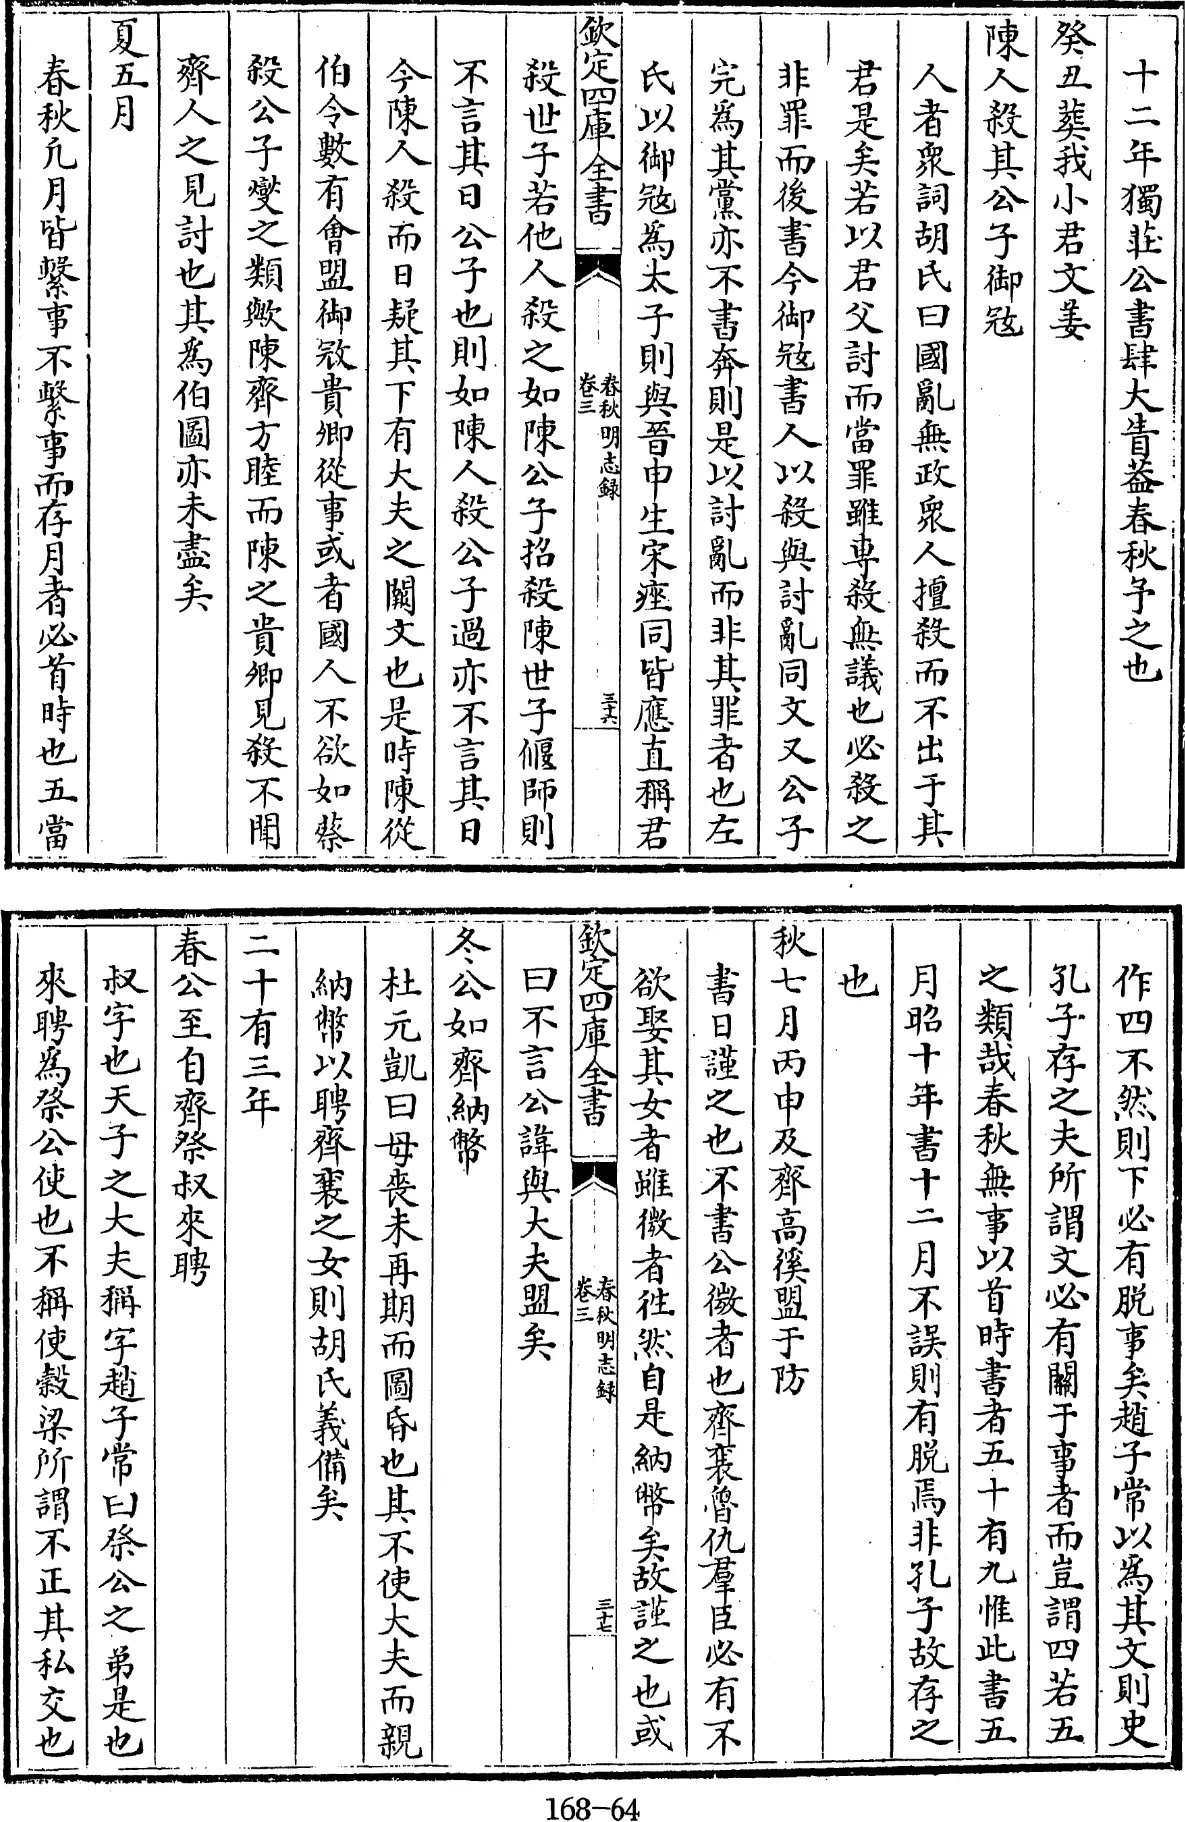 十二年獨莊公書肆大眚葢春秋予之也
癸丑葬我小君文姜
陳人殺其公子御寇
人者衆詞胡氏曰國亂無政衆人擅殺而不出于其
君是矣若以君父討而當罪雖専殺無議也必殺之
非罪而後書今御寇書人以殺與討亂同文又公子
完為其黨亦不書奔則是以討亂而非其罪者也左
氏以御寇為太子則與晉申生宋痤同皆應直稱君
欽定四庫全書
春秋明志録
卷三
三十六
殺世子若他人殺之如陳公子招殺陳世子偃師則
不言其日公子也則如陳人殺公子過亦不言其日
今陳人殺而日疑其下有大夫之闕文也是時陳從
伯令數有會盟御寇貴卿從事或者國人不欲如蔡
殺公子燮之類歟陳齊方睦而陳之貴卿見殺不聞
齊人之見討也其為伯圖亦未盡矣
夏五月
春秋凢月皆繫事不繫事而存月者必首時也五當
作四不然則下必有脱事矣趙子常以為其文則史
孔子存之夫所謂文必有關于事者而豈謂四若五
之類哉春秋無事以首時書者五十有九惟此書五
月昭十年書十二月不誤則有脱焉非孔子故存之
也
秋七月丙申及齊高徯盟于防
書日謹之也不書公微者也齊襄魯仇羣臣必有不
欲娶其女者雖微者往然自是納幣矣故謹之也或
欽定四庫全書
春秋明志録
卷三
三十七
曰不言公諱與大夫盟矣
冬公如齊納幣
杜元凱曰母喪未再期而圖昏也其不使大夫而親
納幣以聘齊襄之女則胡氏義備矣
二十有三年
春公至自齊祭叔來聘
叔字也天子之大夫稱字趙子常曰祭公之弟是也
來聘為祭公使也不稱使榖梁所謂不正其私交也
168-64